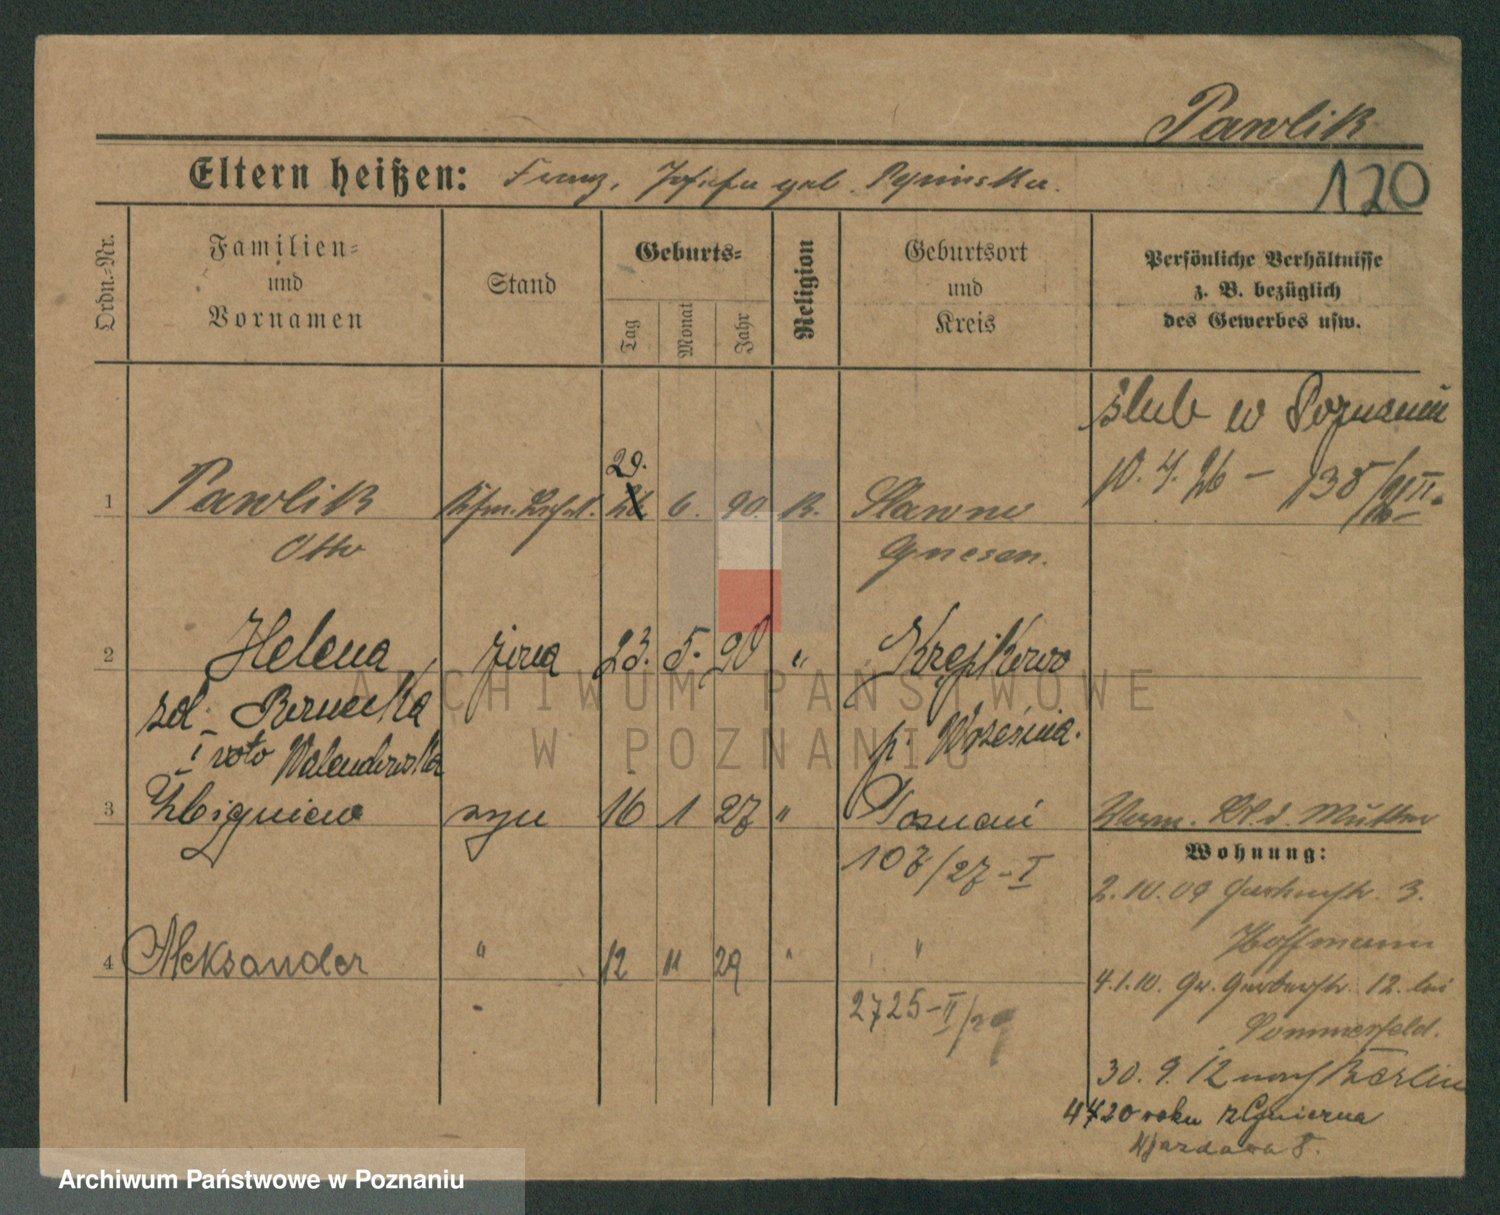 Pawlik
Eltern heißen: Franz, Josefa geb.
120
Ordn.-Nr.
Familien-
und
Vornamen
Stand
Geburts-
Tag
Monat
Jahr
Religion
Geburtsort
und
Kreis
Persönliche Verhältnisse
z. B. bezüglich
des Gewerbes usw.
ślub w Poznaniu
10. 4. 26 –
29.
1 Pawlik 6. 90. K. Slawno
Otto Gnesen.
2 Helena żona 23. 5. 90 "
zol.
i voto
p. Września.
3 Zbigniew syn 16 1 27 " Poznań
107/27-I
d. Mutter
Wohnung:
2.10.09 3.
Hoffmann
4 Aleksander " 12 11 29 " "
2725-II/29
4.1.10. Gr. Gerberstr. 12. bei
Sommerfeld.
30. 9. 12 nach Berlin
20 roku z Gniezna
8.
ARCHIWUM PAŃSTWOWE
W POZNANIU
Archiwum Państwowe w Poznaniu